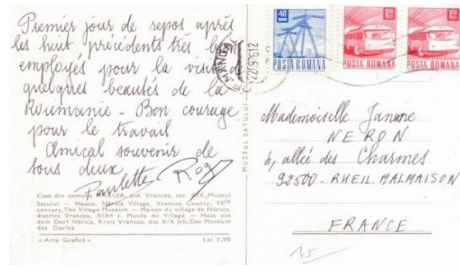 Premier jour de repos après
les huit précédents très bien
employés pour la visite de
quelques beautés de la
Roumanie - Bon courage
pour le travail
Amical souvenir de
tous deux
Paulette Rog
Casa din comuna NĂRUJA, jud. Vrancea, sec. XIX, Muzeul
Satului — House, Năruja Village, Vrancea County, 19th
century, The Village Museum — Maison du village de Năruja,
district Vrancea, XIXe s. Musée du Village — Haus aus
dem Dorf Năruja, Kreis Vrancea, des XIX Jrh, Das Museum
des Dorfes
« Arta Grafică » Lei 1,50
MUZEUL SATULUI
40 BANI
POSTA ROMANA
POSTA ROMANA
POSTA ROMANA
Mademoiselle Janine
NERON
6, allée des Charmes
92500 - RUEIL-MALMAISON
FRANCE
15